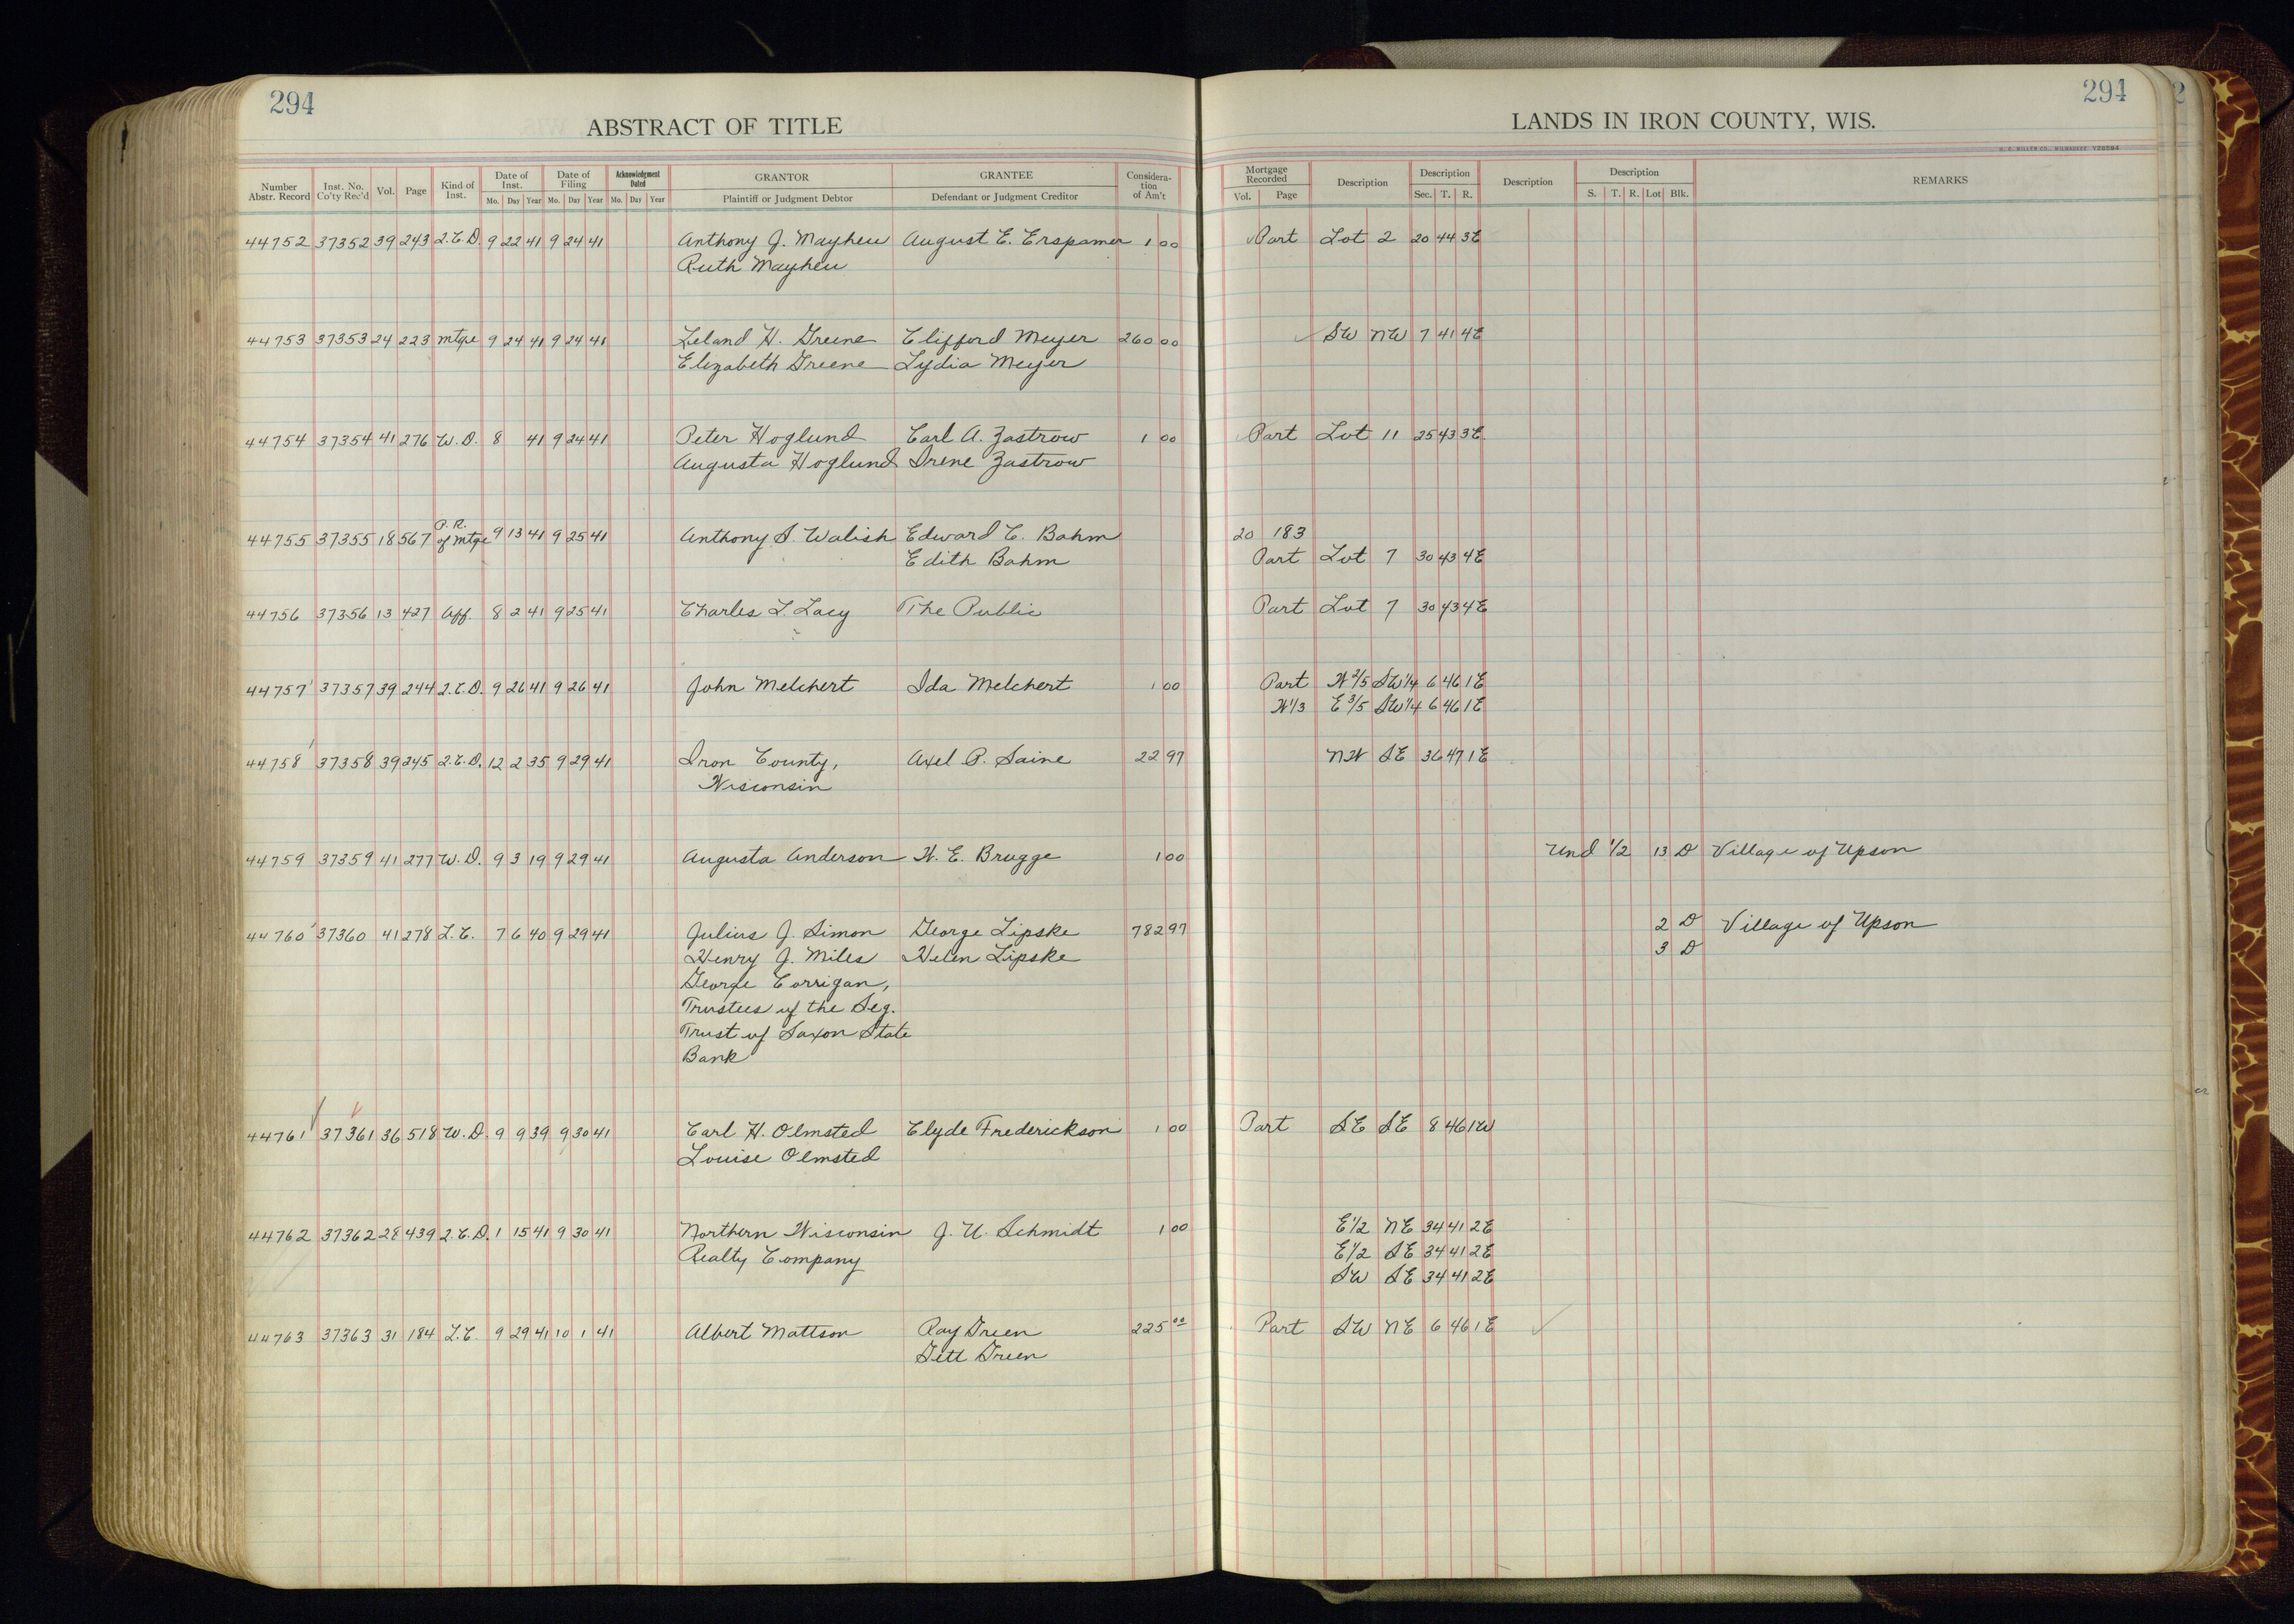 294
ABSTRACT OF TITLE
Number Abstr. Record Inst. No. Co'ty Rec'd Vol. Page Kind of Inst. Date of Inst. Mo. Day Year Date of Filing Mo. Day Year Acknowledgment Dated Mo. Day Year GRANTOR Plaintiff or Judgment Debtor GRANTEE Defendant or Judgment Creditor Considera-tion of Am't
44752 37352 39 243 2.C.D. 9 22 41 9 24 41 Anthony J. Mayhew August E. Erspamer 1 00
Ruth Mayhew
44753 37353 24 223 mtge 9 24 41 9 24 41 Leland H. Greene Clifford Meyer 260 00
Elizabeth Greene Lydia Meyer
44754 37354 41 276 W.D. 8 41 9 24 41 Peter Hoglund Carl A. Zastrow 1 00
Augusta Hoglund Irene Zastrow
P.R.
44755 37355 18 567 of mtge 9 13 41 9 25 41 Anthony S. Walish Edward C. Bahm
Edith Bahm
44756 37356 13 427 Aff. 8 2 41 9 25 41 Charles L. Lacy The Public
44757 37357 39 244 2.C.D. 9 26 41 9 26 41 John Melchert Ida Melchert 1 00
44758 37358 39 245 2.C.D. 12 2 35 9 29 41 Iron County, Axel P. Saine 22 97
Wisconsin
44759 37359 41 277 W.D. 9 3 19 9 29 41 Augusta Anderson H. E. Brugge 1 00
44760 37360 41 278 L.C. 7 6 40 9 29 41 Julius J. Simon George Lipske 782 97
Henry J. Miles Helen Lipske
George Corrigan,
Trustees of the Seg.
Trust of Saxon State
Bank
44761 37361 36 518 W.D. 9 9 39 9 30 41 Earl H. Olmsted Clyde Frederickson 1 00
Louise Olmsted
44762 37362 28 439 2.C.D. 1 15 41 9 30 41 Northern Wisconsin J. U. Schmidt 1 00
Realty Company
44763 37363 31 184 L.C. 9 29 41 10 1 41 Albert Mattson Ray Green 225 00
Green
294
LANDS IN IRON COUNTY, WIS.
H. C. MILLER CO., MILWAUKEE
Mortgage Recorded Vol. Page Description Description Sec. T. R. Description Description S. T. R. Lot Blk. REMARKS
Part Lot 2 20 44 3E
SW NW 7 41 4E
Part Lot 11 25 43 3E
20 183
Part Lot 7 30 43 4E
Part Lot 7 30 43 4E
Part W 2/5 SW 1/4 6 46 1E
W 1/3 E 3/5 SW 1/4 6 46 1E
NW SE 36 47 1E
Und 1/2 13 D Village of Upson
2 D Village of Upson
3 D
Part SE SE 8 46 1W
E 1/2 NE 34 41 2E
E 1/2 SE 34 41 2E
SW SE 34 41 2E
Part SW NE 6 46 1E